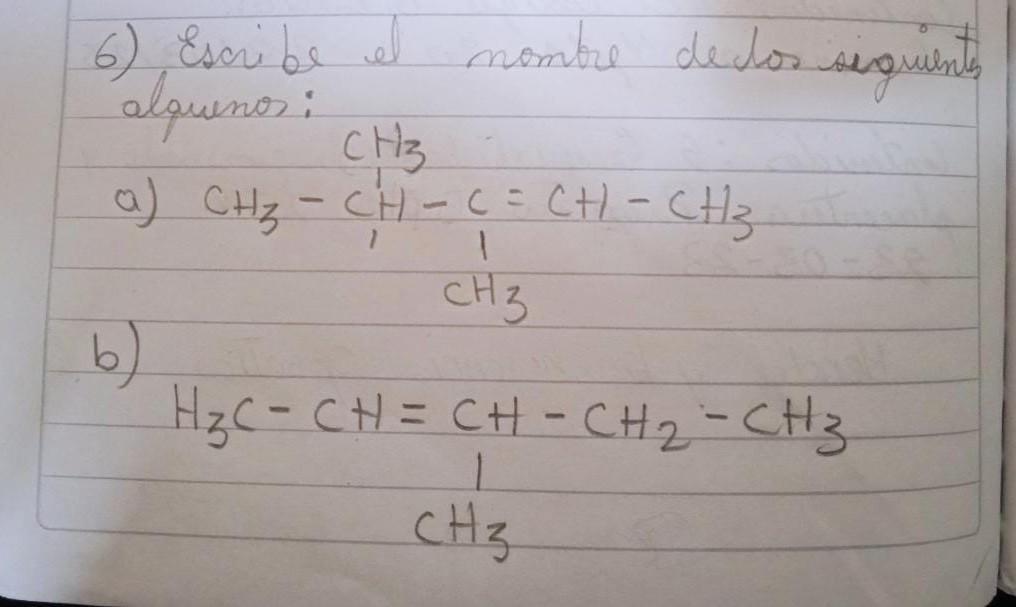 6) Escribe el nombre de los siguientes
alquenos:
CH3
a) CH3 - CH - C = CH - CH3
CH3
b)
H3C - CH = CH - CH2 - CH3
CH3